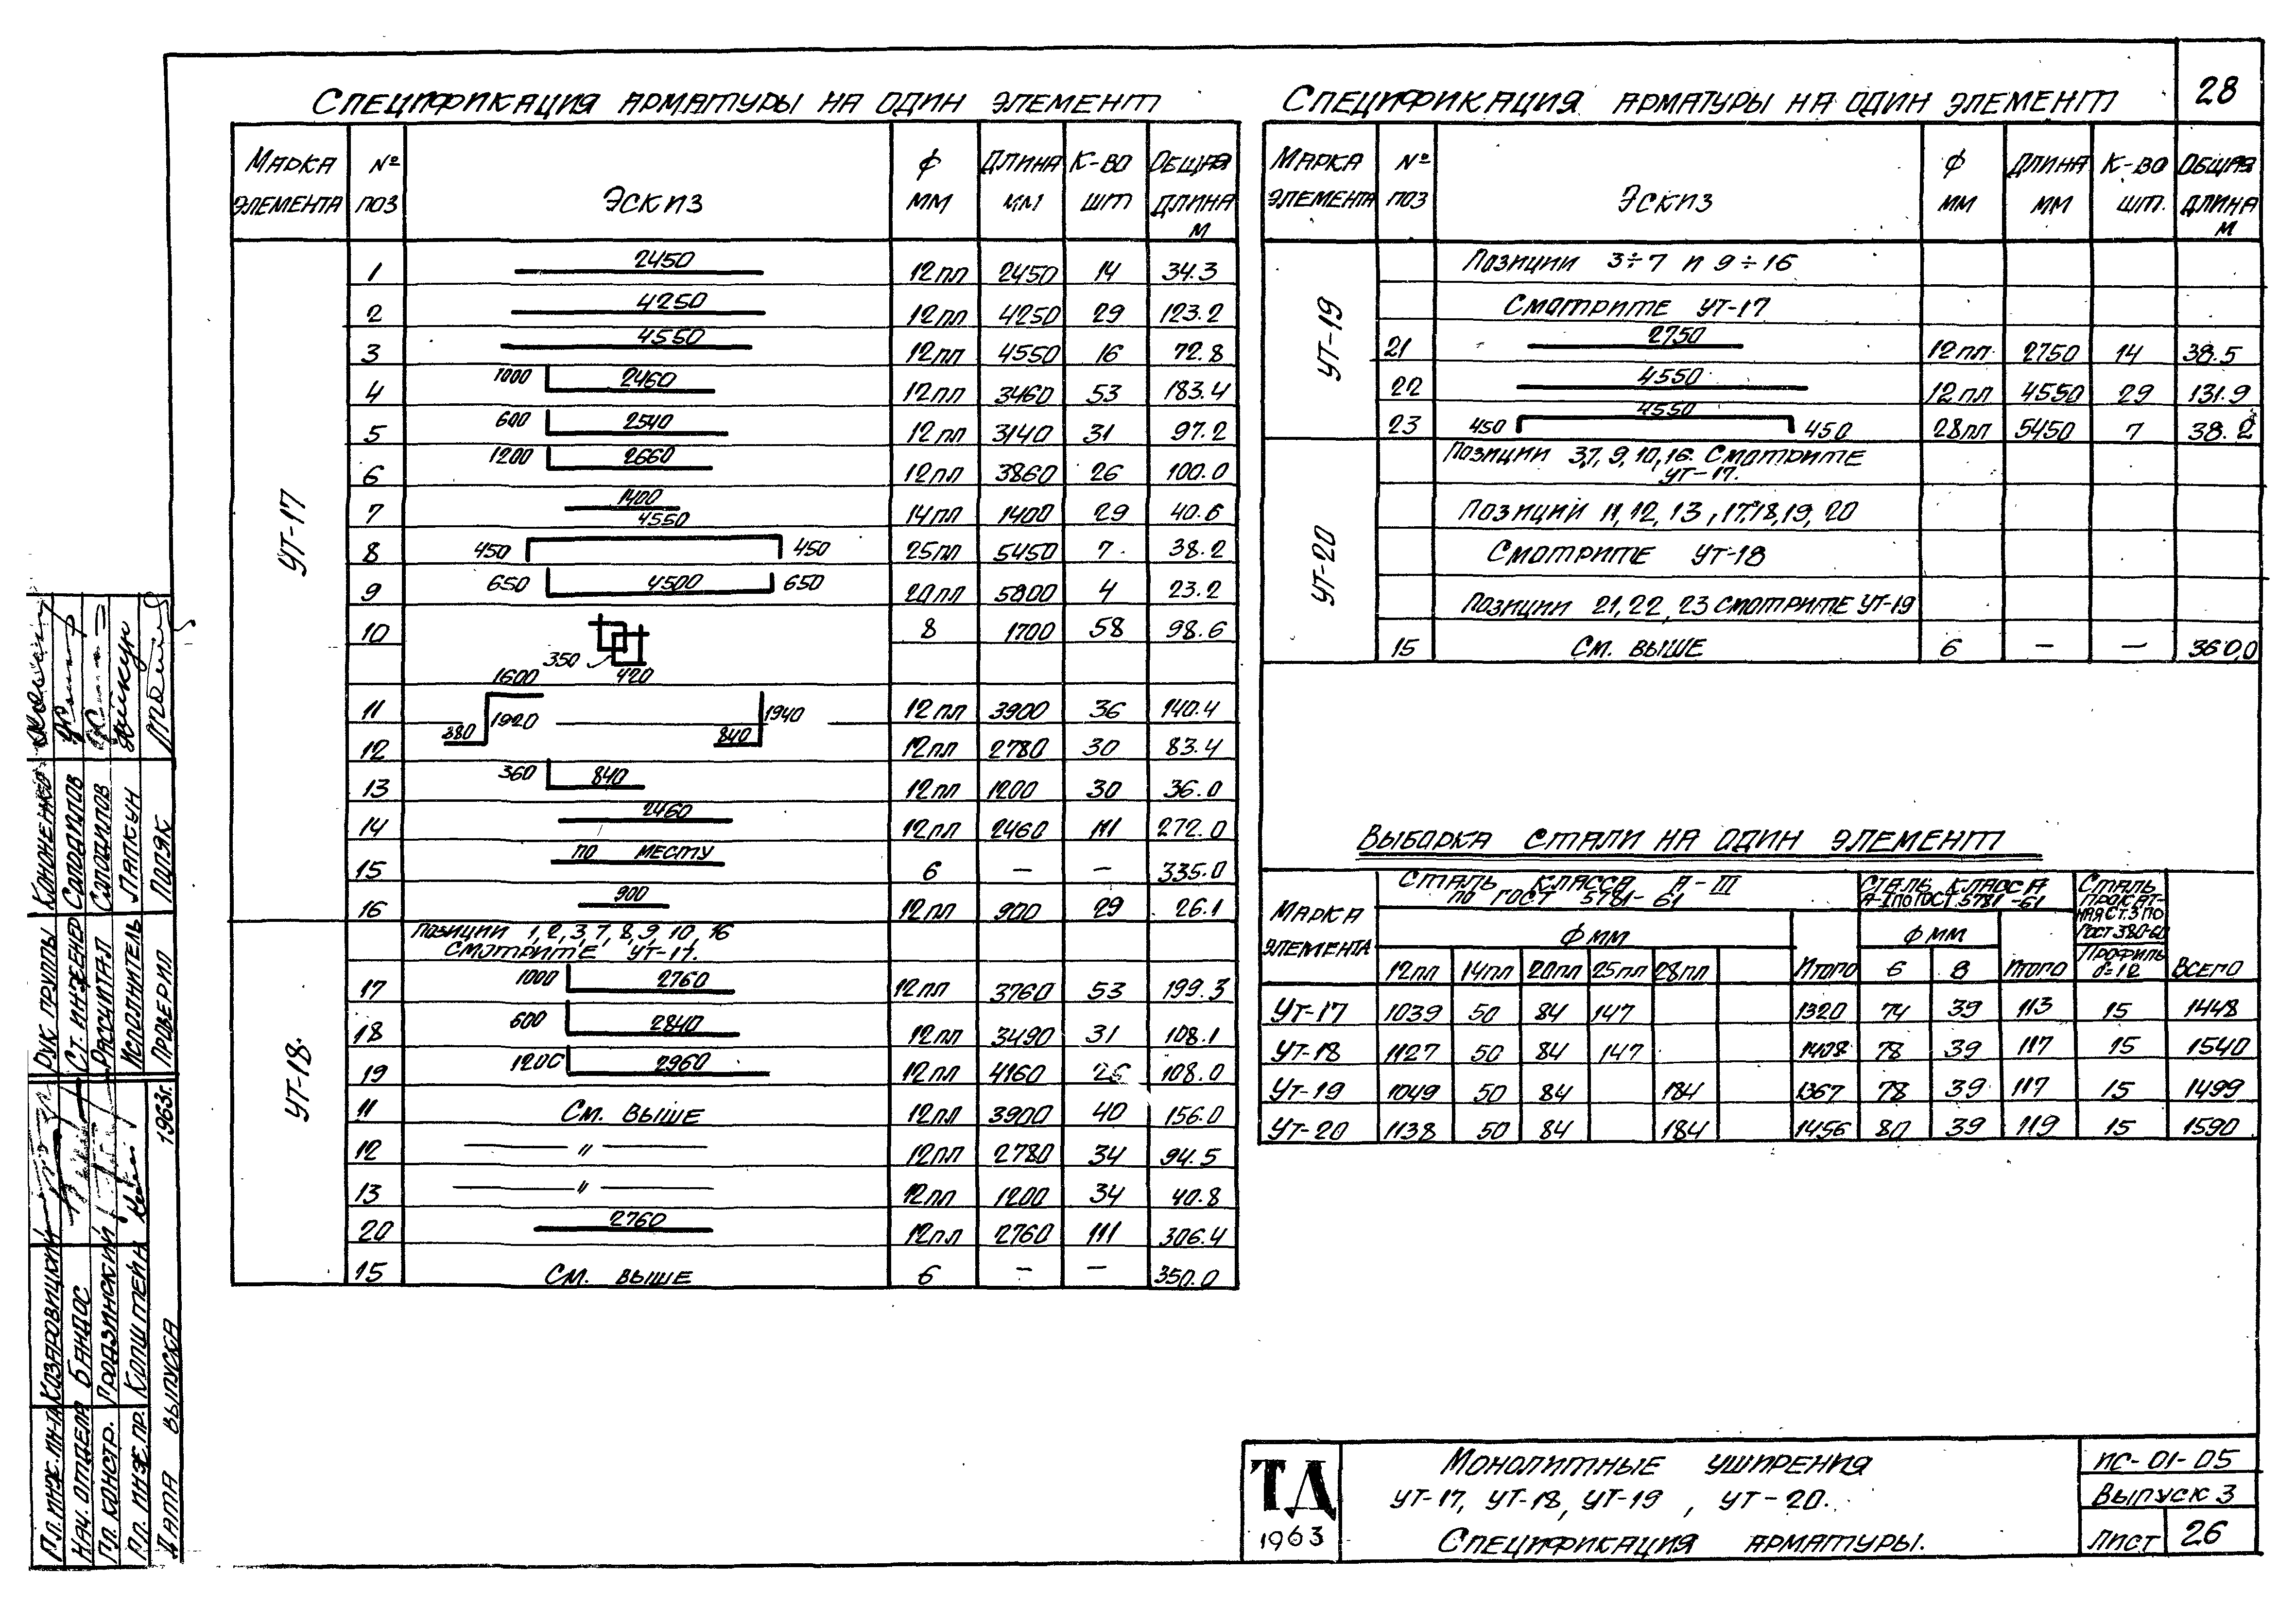 28
Спецификация арматуры на один элемент
Марка элемента | № поз | Эскиз | ф мм | Длина мм | К-во шт | Общая длина м
УТ-17
1 | 2450 | 12пл | 2450 | 14 | 34.3
2 | 4250 | 12пл | 4250 | 29 | 123.2
3 | 4550 | 12пл | 4550 | 16 | 72.8
4 | 1000 2460 | 12пл | 3460 | 53 | 183.4
5 | 600 2540 | 12пл | 3140 | 31 | 97.2
6 | 1200 2660 | 12пл | 3860 | 26 | 100.0
7 | 1400 | 14пл | 1400 | 29 | 40.6
8 | 450 4550 450 | 25пл | 5450 | 7 | 38.2
9 | 650 4500 650 | 20пл | 5800 | 4 | 23.2
10 | 350 420 | 8 | 1700 | 58 | 98.6
11 | 1600 1920 380 | 12пл | 3900 | 36 | 140.4
12 | 1940 840 | 12пл | 2780 | 30 | 83.4
13 | 360 840 | 12пл | 1200 | 30 | 36.0
14 | 2460 | 12пл | 2460 | 111 | 272.0
15 | по месту | 6 | — | — | 335.0
16 | 900 | 12пл | 900 | 29 | 26.1
УТ-18.
Позиции 1, 2, 3, 7, 8, 9, 10, 16
смотрите УТ-17.
17 | 1000 2760 | 12пл | 3760 | 53 | 199.3
18 | 600 2840 | 12пл | 3490 | 31 | 108.1
19 | 2960 | 12пл | 4160 | 26 | 108.0
11 | См. выше | 12пл | 3900 | 40 | 156.0
12 | — " — | 12пл | 2780 | 34 | 94.5
13 | — " — | 12пл | 1200 | 34 | 40.8
20 | 2760 | 12пл | 2760 | 111 | 306.4
15 | См. выше | 6 | — | — | 350.0
Спецификация арматуры на один элемент
Марка элемента | № поз | Эскиз | ф мм | Длина мм | К-во шт. | Общая длина м
УТ-19
Позиции 3÷7 и 9÷16
Смотрите УТ-17
21 | 2750 | 12пл | 2750 | 14 | 38.5
22 | 4550 | 12пл | 4550 | 29 | 131.9
23 | 450 4550 450 | 28пл | 5450 | 7 | 38.2
УТ-20
Позиции 3,7, 9, 10, 16. Смотрите
УТ-17.
Позиции 11, 12, 13, 17,18, 19, 20
Смотрите УТ-18
Позиции 21, 22, 23 смотрите УТ-19
15 | См. выше | 6 | — | — | 360,0
Выборка стали на один элемент
Марка элемента | Сталь класса А-III по ГОСТ 5781-61 | Сталь класса А-I по ГОСТ 5781-61 | Сталь прокатная ст.3 по ГОСТ 380-60 | Всего
ф мм | Итого | ф мм | Итого | Профиль
12пл | 14пл | 20пл | 25пл | 28пл | 6 | 8 | δ=12
УТ-17 | 1039 | 50 | 84 | 147 | 1320 | 74 | 39 | 113 | 15 | 1448
УТ-18 | 1127 | 50 | 84 | 147 | 1408 | 78 | 39 | 117 | 15 | 1540
УТ-19 | 1049 | 50 | 84 | 184 | 1367 | 78 | 39 | 117 | 15 | 1499
УТ-20 | 1138 | 50 | 84 | 184 | 1456 | 80 | 39 | 119 | 15 | 1590
ТД
1963
Монолитные уширения
УТ-17, УТ-18, УТ-19, УТ-20.
Спецификация арматуры.
ПС-01-05
Выпуск 3
Лист 26
Рук. группы Кононенко
Ст. инженер Солодилов
Рассчитал Солодилов
Исполнитель Лапкун
Проверил
Гл. инж. ин-та Казаровицкий
Нач. отдела Бандос
Гл. констр.
Гл. инж. пр. Копштейн
Дата выпуска 1963г.